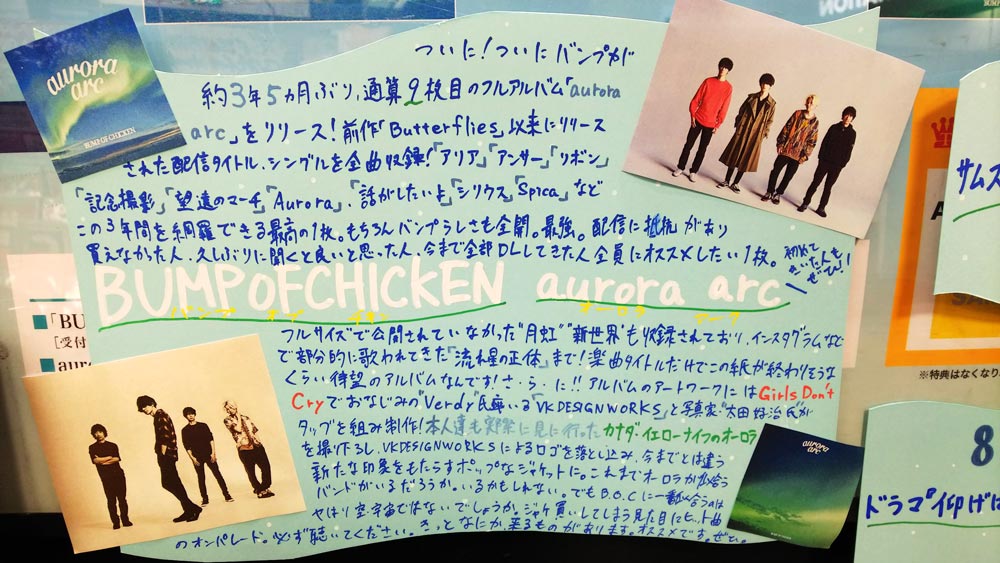 aurora
arc
BUMP OF CHICKEN
ついに!ついにバンプが
約3年5カ月ぶり、通算9枚目のフルアルバム「aurora
arc」をリリース!前作「Butterflies」以来にリリース
された配信タイトル、シングルを全曲収録!「アリア」「アンサー」「リボン」
「記念撮影」「望遠のマーチ」「Aurora」「話がしたいよ」「シリウス」「Spica」など
この3年間を網羅できる最高の1枚。もちろんバンプらしさも全開。最強。配信に抵抗があり
買えなかった人、久しぶりに聞くと良いと思った人、今まで全部DLしてきた人全員にオススメしたい1枚。
初めて
きいた人も!
ぜひ!
BUMP OF CHICKEN aurora arc
バンプ オブ チキン オーロラ アーク
フルサイズで公開されていなかった"月虹""新世界"も収録されており、インスタグラムなど
で部分的に歌われてきた「流れ星の正体」まで!楽曲タイトルだけでこの紙が終わりそうな
くらい待望のアルバムなんです!さ・ら・に!!アルバムのアートワークにはGirls Don't
Cryでおなじみの"Verdy"氏率いる「VK DESIGN WORKS」と写真家"太田好治氏"が
タッグを組み制作!本人達も実際に見に行ったカナダ・イエローナイフのオーロラ
を撮り下ろし、VK DESIGN WORKSによるロゴを落とし込み、今までとは違う
新たな印象をもたらすポップなジャケットに。これまでオーロラが似合う
バンドがいるだろうか。いるかもしれない。でもB.O.Cに一番似合うのは
やはり空、宇宙ではないでしょうか。ジャケ買いしてしまう見た目にヒット曲
のオンパレード。必ず聴いてください。きっとなにか来るものがあります。オススメです。ぜひ。
aurora
arc
「BU
[受付
auro
※特典はなくなり
サムス
8
ドラマ『仰げば